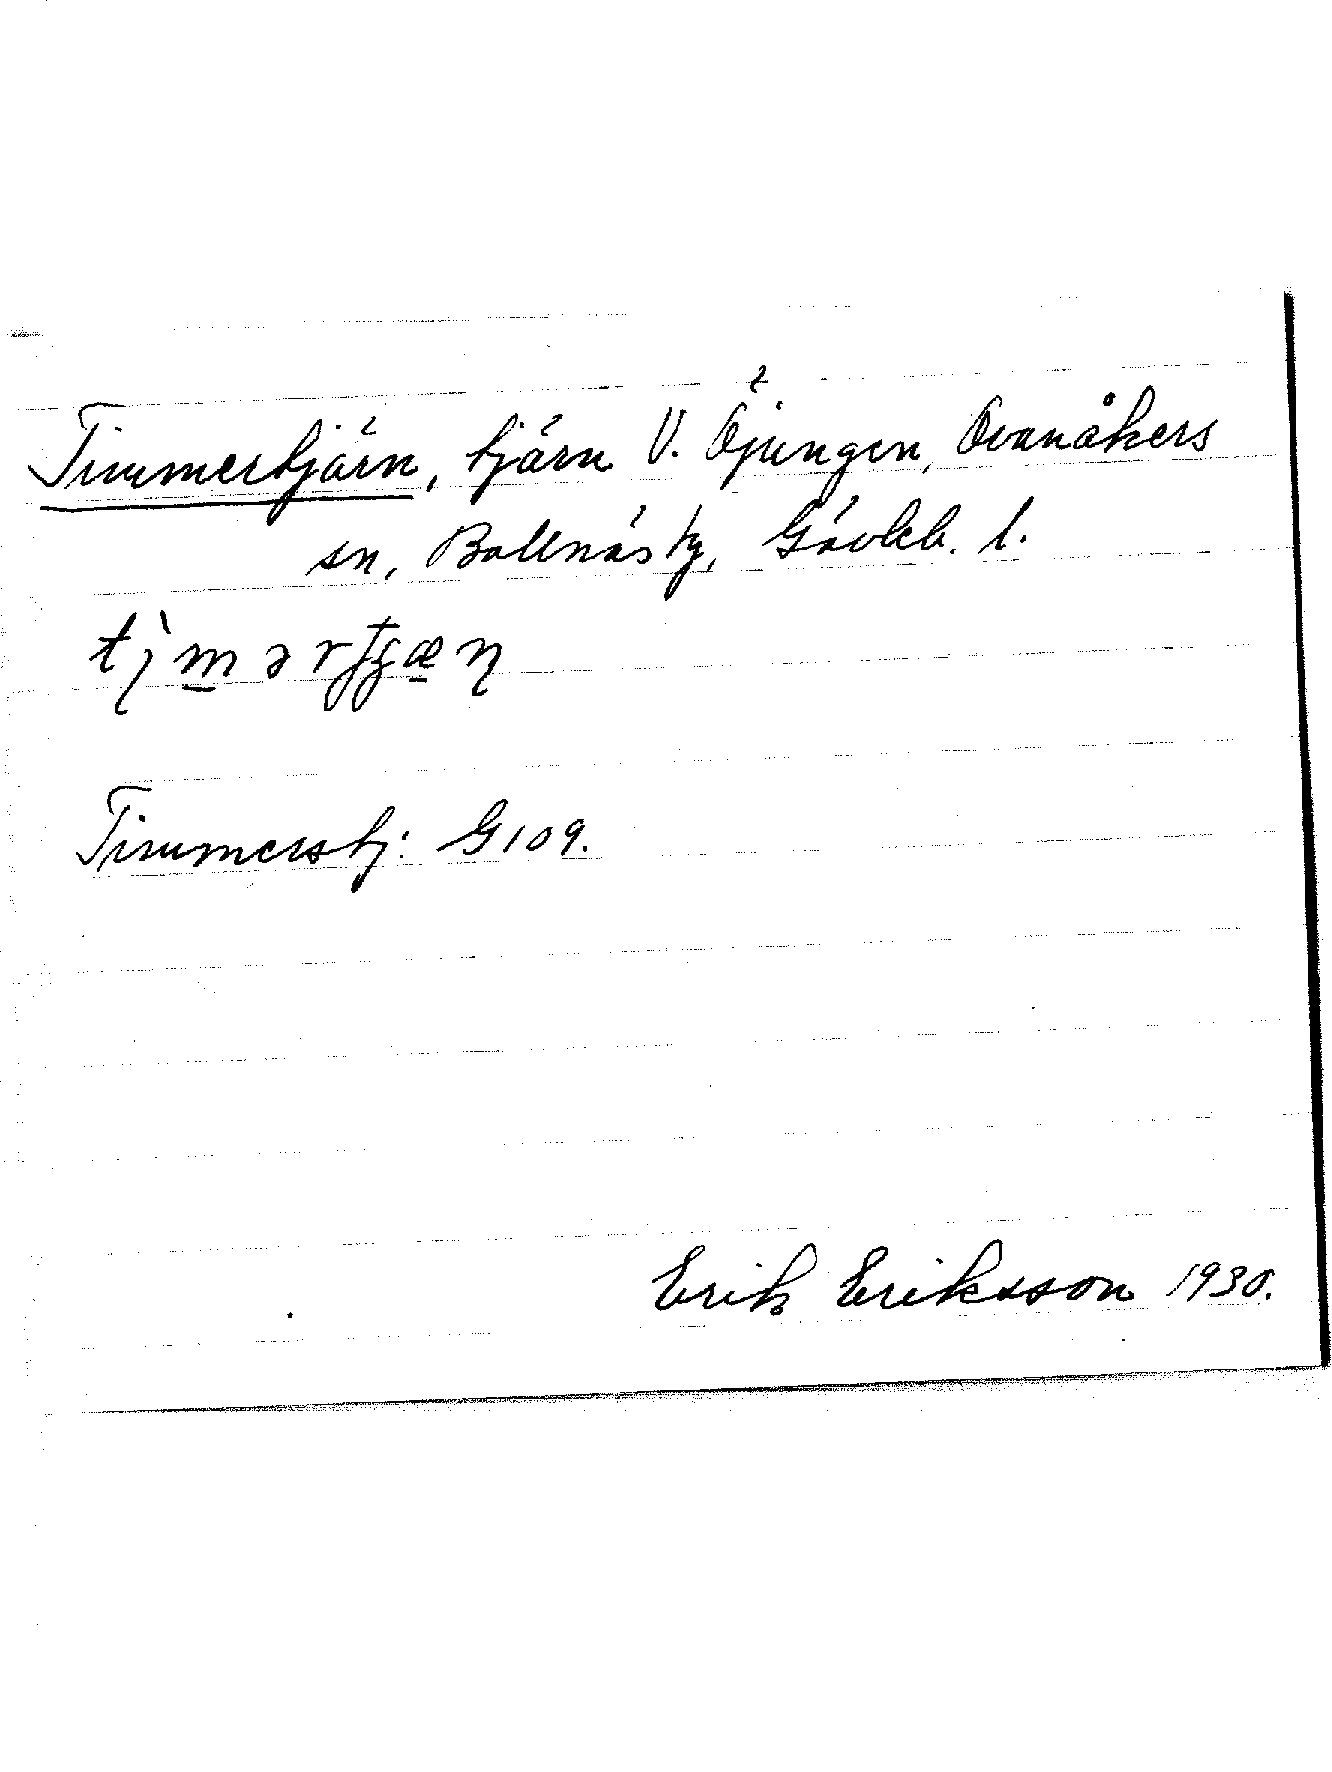 Timmertjärn, tjärn V. Öjungen, Ovanåkers
sn, Bollnäs tg, Gävleb. l.
Timmerstj: G109.
Erik Eriksson 1930.